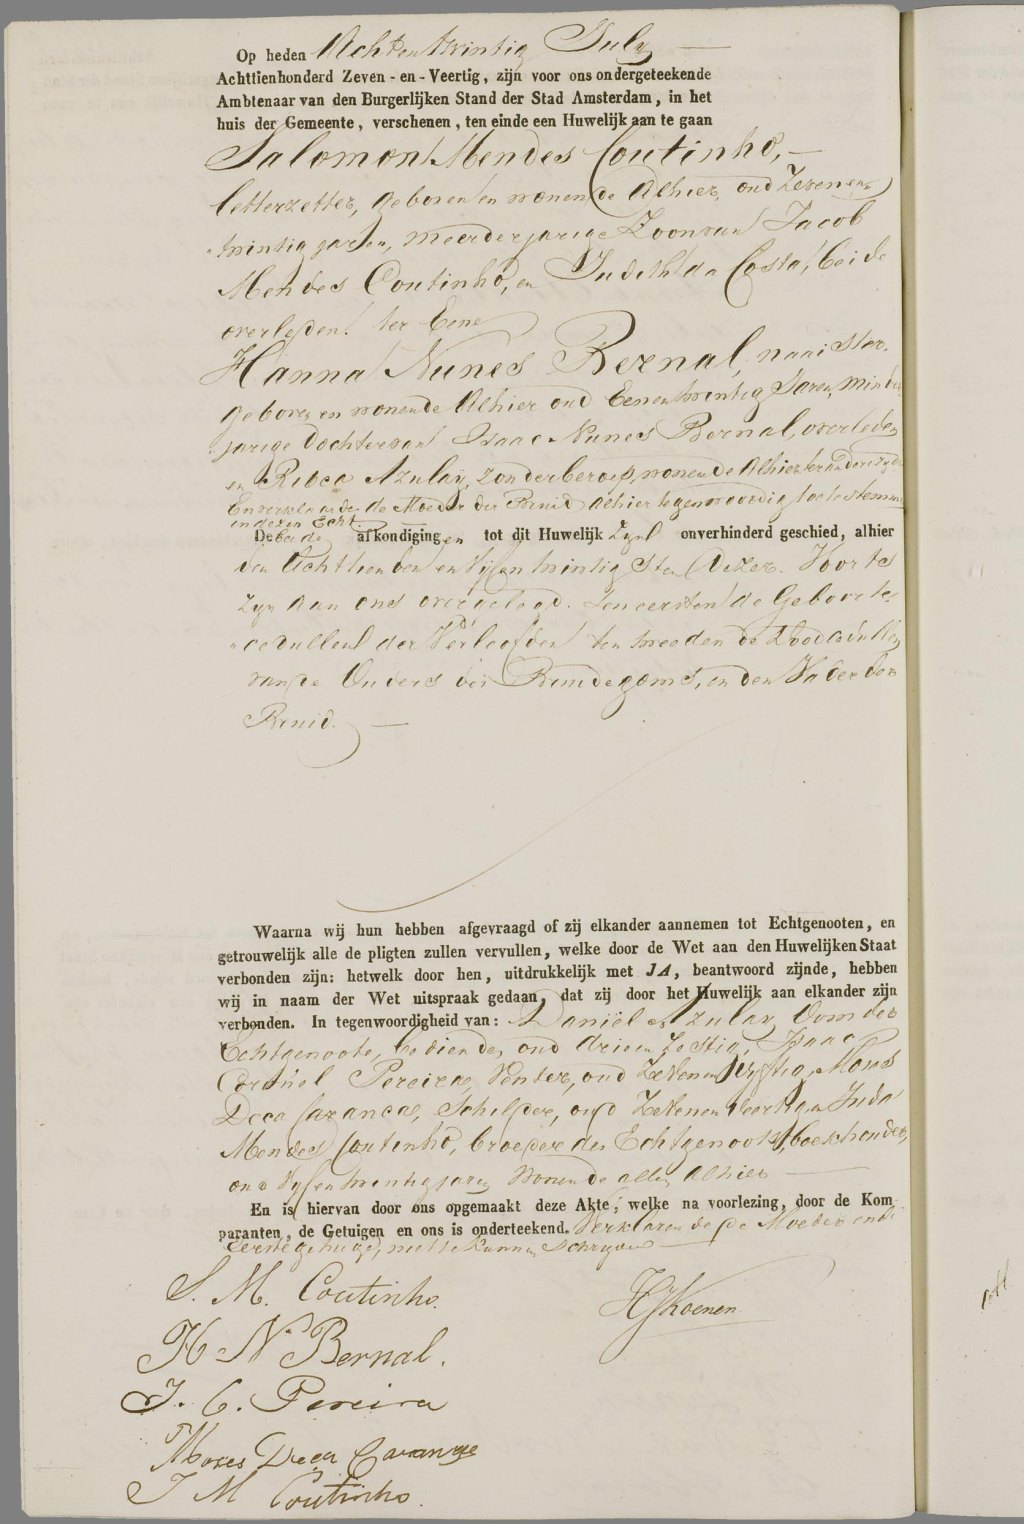 Op heden Achtentwintig July
Achttienhonderd Zeven-en-Veertig, zijn voor ons ondergeteekende
Ambtenaar van den Burgerlijken Stand der Stad Amsterdam, in het
huis der Gemeente, verschenen, ten einde een Huwelijk aan te gaan
Salomon Mendes Coutinho,
letterzetter, geboren en wonende Alhier, oud Zeven en
twintig jaren, meerderjarige Zoon van Jacob
Mendes Coutinho, en Judith da Costa, beide
overleden. ter Eene
Hanna Nunes Bernal, naaister,
geboren en wonende Alhier oud Eenentwintig Jaren, minder
jarige Dochter van Isaac Nunes Bernal, overleden
en Ribca Azulay, zonder beroep, wonende Alhier ter andere zijde
En verklaarde de Moeder der Bruid alhier tegenwoordig toetestemmen
in dezen Echt.
De beide afkondigingen tot dit Huwelijk Zyn onverhinderd geschied, alhier
den Achttienden en Vijfentwintigsten Dezer. Voorts
Zyn aan ons overgelegd. ten eersten de Geboorte
cedullen der Verloofden ten tweeden de Doodcedullen
van de Ouders des Bruidegoms, en den Vader der
Bruid.
Waarna wij hun hebben afgevraagd of zij elkander aannemen tot Echtgenooten, en
getrouwelijk alle de pligten zullen vervullen, welke door de Wet aan den Huwelijken Staat
verbonden zijn: hetwelk door hen, uitdrukkelijk met JA, beantwoord zijnde, hebben
wij in naam der Wet uitspraak gedaan, dat zij door het Huwelijk aan elkander zijn
verbonden. In tegenwoordigheid van: Daniël Azulay, Oom der
Echtgenoote, bediende, oud drieenzestig, Isaac
Coronel Pereira, Venter, oud Zevenenvyftig, Moses
Deca Caranca, Schilder, oud Zevenenveertig en Juda
Mendes Coutinho, broeder des Echtgenoots, boekhouder,
oud Vijfentwintig jaren Wonende allen Alhier
En is hiervan door ons opgemaakt deze Akte, welke na voorlezing, door de Kom
paranten, de Getuigen en ons is onderteekend. Verklarende de Moeder en de
Eerste getuige, niet te kunnen Schryven
S. M. Coutinho.
HJKoenen
H N Bernal.
I. C. Pereira
Moses Deca Caranca
J M Coutinho.